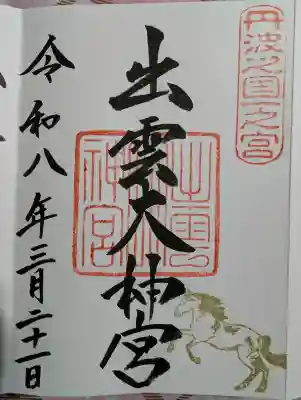 丹波之國一之宮
出雲大神宮
出雲大神宮
令和八年三月二十一日